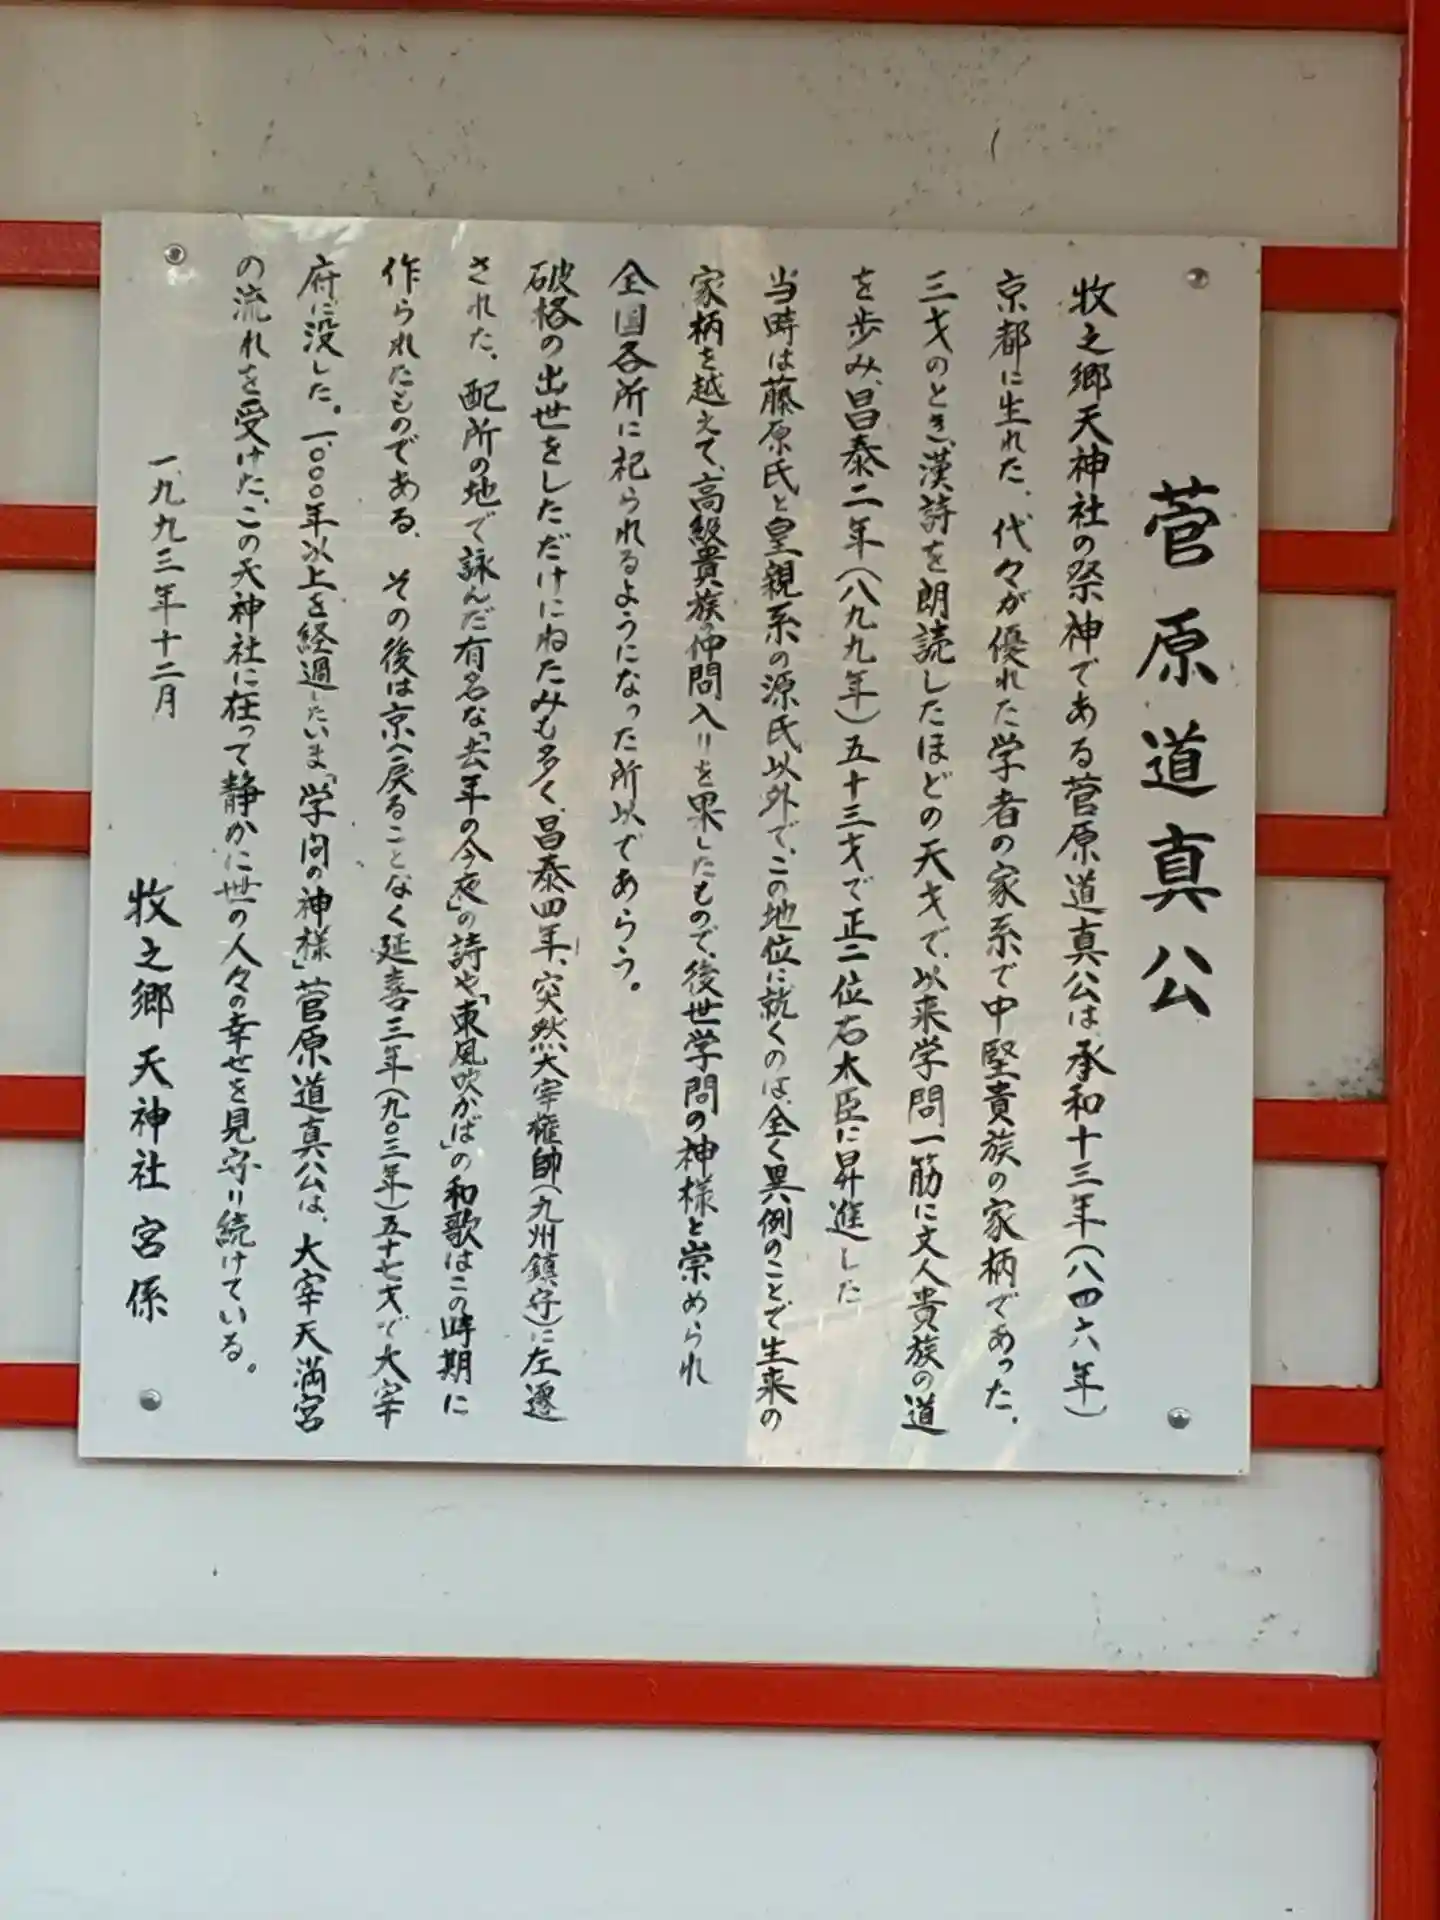 菅原道真公
牧之郷天神社の祭神である菅原道真公は、承和十三年(八四六年)
京都に生れた、代々が優れた学者の家系で中堅貴族の家柄であった、
三才のとき、漢詩を朗読したほどの天才で、以来学問一筋に文人貴族の道
を歩み、昌泰二年(八九九年)五十三才で正二位右大臣に昇進した
当時は藤原氏と皇親系の源氏以外で、この地位に就くのは、全く異例のことで生来の
家柄を越えて、高級貴族の仲間入りを果したもので、後世学問の神様と崇められ
全国各所に祀られるようになった所以であらう。
破格の出世をした、だけにねたみも多く、昌泰四年、突然大宰権帥(九州鎮守)に左遷
された、配所の地で詠んだ有名な「去年の今夜」の詩や「東風吹かば」の和歌はこの時期に
作られたものである、その後は京へ戻ることなく延喜三年(九〇三年)五十七才で大宰
府に没した。一、〇〇〇年以上を経過したいま「学問の神様」菅原道真公は、大宰天満宮
の流れを受けた、この天神社に在って静かに世の人々の幸せを見守り続けている。
一、九九三年十二月
牧之郷天神社宮係